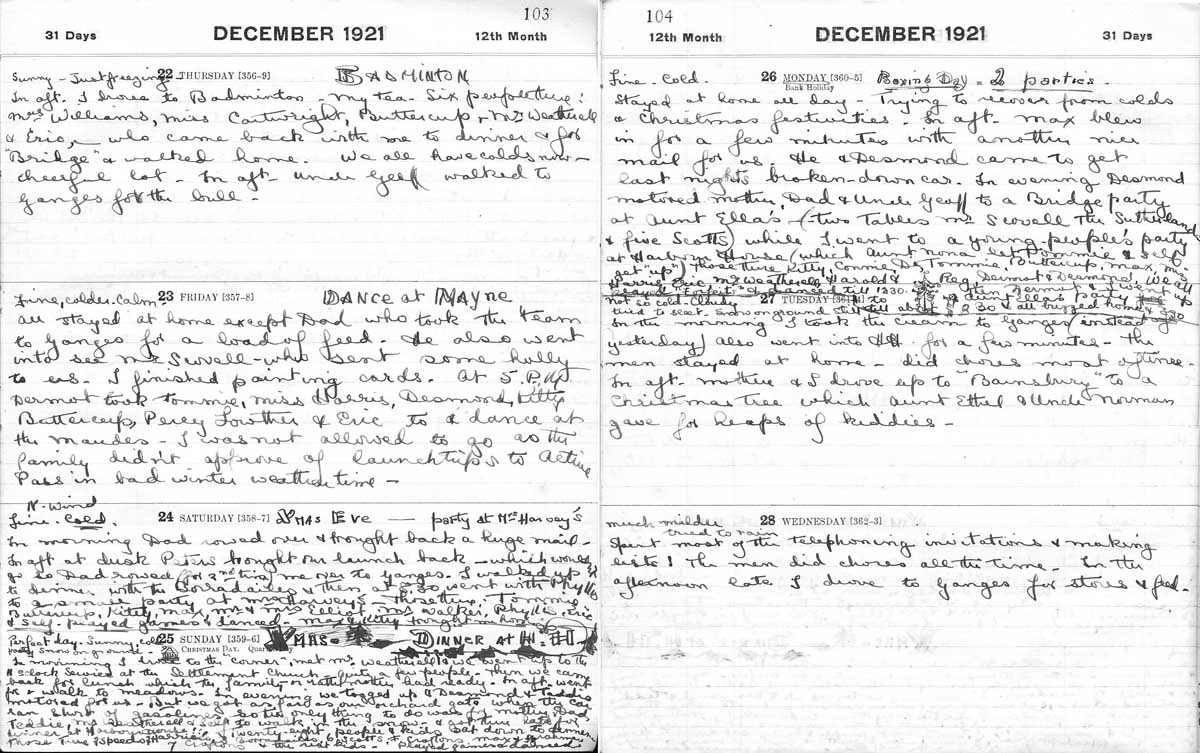 103
31 Days
DECEMBER 1921
12th Month
Sunny - Just freezing
22 THURSDAY [356-9]
BADMINTON
In aft. I drove to Badminton - my tea. Six people there:
Mrs Williams, Miss Cartwright, Buttercup, Mr Weatherell
& Eric, who came back with me to dinner & for
"Bridge" & walked home. We all have colds now -
cheerful lot - In aft. Uncle Geoff walked to
Ganges for the bull.
Fine, colder. Calm.
23 FRIDAY [357-8]
DANCE at MAYNE
All stayed at home except Dad who took the team
to Ganges for a load of feed. He also went
into see Mr Scovell - who sent some holly
to us. I finished painting cards. At 5 P.M.
Dermot took Tommie, Miss Harris, Desmond, Kitty
Buttercup, Percy Lowther & Eric to a dance at
the Maudes - I was not allowed to go as the
family didn't approve of launch trips to Active
Pass in bad winter weather time -
N. Wind
Fine. Cold.
24 SATURDAY [358-7]
XMAS EVE - party at Mrs Harvey's
In morning Dad rowed over & brought back a huge mail -
In aft at dusk Peter brought our launch back - which would
go so Dad rowed (for 2nd time) me over to Ganges. I walked up
to dinner with the Borradailes & then at 8.30 went with Phyllis
to a small party at Mrs Harvey's - there were Tommie,
Buttercup, Kitty, Mr & Mrs Elliot, Mr Walker, Phyllis, Eric
& self. played games & danced - Max & Kitty brought me home
Perfect day. Sunny, cold
25 SUNDAY [359-6]
CHRISTMAS DAY. Quarter Day
XMAS
DINNER AT H. H.
Snow on ground -
In morning I drove to the "corner", met Mr Weatherell & we went up to the
11 o'clock Service at the Settlement Church - quite a few people. Then we came
back for lunch which the family - or rather mother had ready. In aft. went
for a walk to meadows - In evening we togged up & Desmond & Teddie
motored for us - But we got as far as our orchard gate when the car
ran short of gasoline so the only thing to do was for mother, Dad
Teddie, Mr Weatherell & self to walk in the snow - & got there late for
dinner at Harbour House. Twenty-eight people & kids sat down to dinner
Those there 7 Speeds, 6 Scotts,
7 Croftons the rest kids - played games & danced
104
12th Month
DECEMBER 1921
31 Days
Fine. Cold.
26 MONDAY [360-5]
Bank Holiday
Boxing Day - 2 parties.
Stayed at home all day - Trying to recover from colds
& Christmas festivities. In aft. Max blew
in for a few minutes with another nice
mail for us. He & Desmond came to get
last night's broken-down car. In evening Desmond
motored mother, Dad & Uncle Geoff to a Bridge party
at Aunt Ella's (two Tables Mr Scovell The Sutherlands
& five Scotts) while I went to a young-people's party
at Harbour House (which Aunt Nona let Tommie & self
"get up") Those there, Kitty, Connie, Do, Tommie, Buttercup, Max, Miss
Harris, Eric, Mr Weatherell, Harold & I Ray, Dermot & Desmond, We all
played "Forfeit" & danced till 1.30.
not so cold. Cloudy
27 TUESDAY [361-4]
tried to sleet. Snow on ground still
In the morning I took the cream to Ganges (instead of
yesterday) also went into HH. for a few minutes - The
men stayed at home - did chores most of time -
In aft. mother & I drove up to "Bainsbury" to a
Christmas Tree which Aunt Ethel & Uncle Norman
gave for heaps of kiddies -
much milder
tried to rain
28 WEDNESDAY [362-3]
Spent most of the telephoning invitations & making
lists! The men did chores all the time. In the
afternoon late I drove to Ganges for stores & feed.